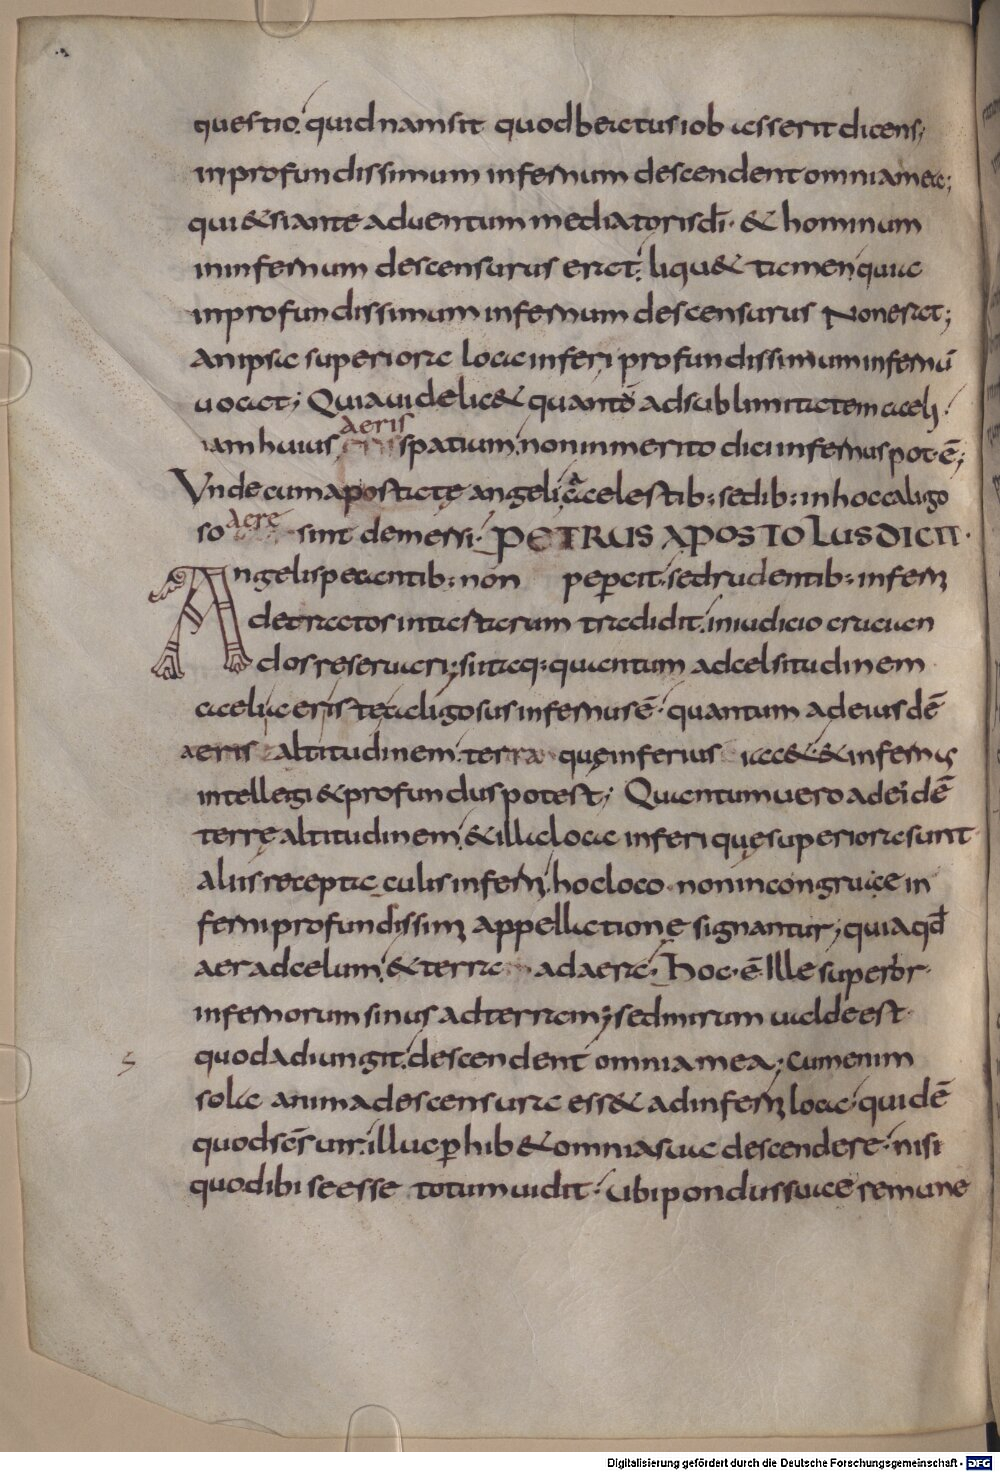 questio. quid nam sit quod beatus iob asserit dicens;
in profundissimum infernum descendent omnia mea;
qui & si ante aduentum mediatoris di. & hominum
in infernum descensurus erat. liqu& tamen quia
in profundissimum infernum descensurus Non erat;
An ipsa superiora loca inferi profundissimum infernū
uocat; Quia uidelic& quanto ad sublimitatem caeli.
iam huius aeris spatium. non inmerito dici infernus pot. ē;
Vnde cum apostatę angeli a celestib: sedib: in hoc caligo
so aere sint demessi. PETRUS APOSTOLUS DICIT.
Angelis peccantib: non pepercit. sed rudentib: inferni
detractos in tartarum tradidit. in iudicio crucian
dos reseruari; si itaq: quantum ad celsitudinem
caeli aer iste caligosus infernus ē. quantum ad eiusdē
aeris altitudinem. terra quę inferius iac&. & infernus
intellegi & profundus potest; Quantum uero ad eidē
terrę altitudinem. & illa loca inferi quę superiora sunt
aliis receptaculis inferni. hoc loco non incongruae in
ferni profundissimi appellatione signantur; quia qd
aer ad celum. & terra ad aera. Hoc. ē Ille superior
infernorum sinus ad terram; sed mirum ualde est
quod adiungit. descendent omnia mea; cum enim
sola anima descensura ess& ad inferni loca. quid ē
quod scs uir. illuc phib& omnia sua descendere. nisi
quod ibi se esse totum uidit. ubi pondus suae remune